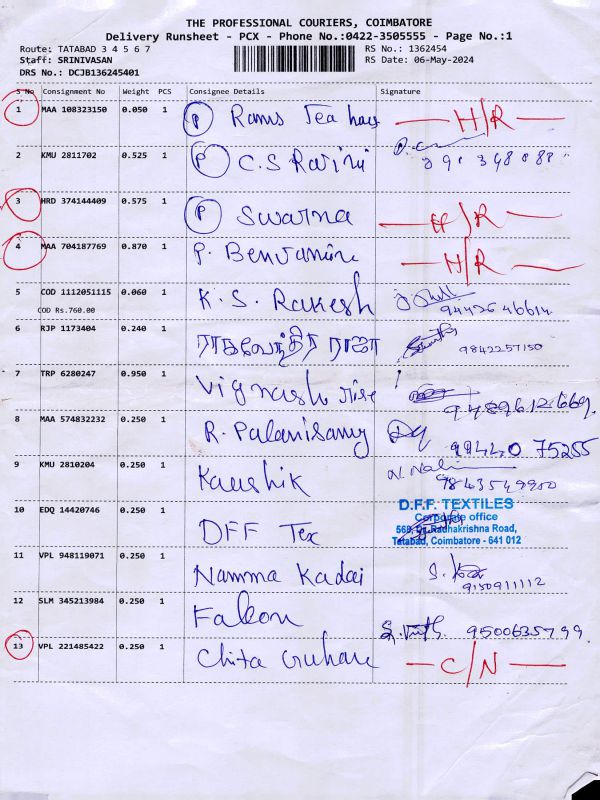 THE PROFESSIONAL COURIERS, COIMBATORE
Delivery Runsheet - PCX - Phone No.:0422-3505555 - Page No.:1
Route: TATABAD 3 4 5 6 7
RS No.: 1362454
Staff: SRINIVASAN
RS Date: 06-May-2024
DRS No.: DCJB136245401
S No Consignment No Weight PCS Consignee Details Signature
1 MAA 108323150 0.050 1 P Rams Tea H/R
2 KMU 2811702 0.525 1 P C.S Ravini
3 HRD 374144409 0.575 1 P Swarna H/R
4 MAA 704187769 0.870 1 P. Benjamin H/R
5 COD 1112051115 0.060 1 K. S. Rakesh 9442646614
COD Rs.760.00
6 RJP 1173404 0.240 1 ராகவேந்திர ராஜா 9842257150
7 TRP 6280247 0.950 1 Vignesh 9489612669
8 MAA 574832232 0.250 1 R. Palanisamy 99440 75255
9 KMU 2810204 0.250 1 Kaushik 9843549950
10 EDQ 14420746 0.250 1 DFF Tex D.F.F. TEXTILES
Corporate office
569, Dr. Radhakrishna Road,
Tatabad, Coimbatore - 641 012
11 VPL 948119071 0.250 1 Namma Kadai 9150911112
12 SLM 345213984 0.250 1 Falcon 9500635799
13 VPL 221485422 0.250 1 Chita Guhan C/N